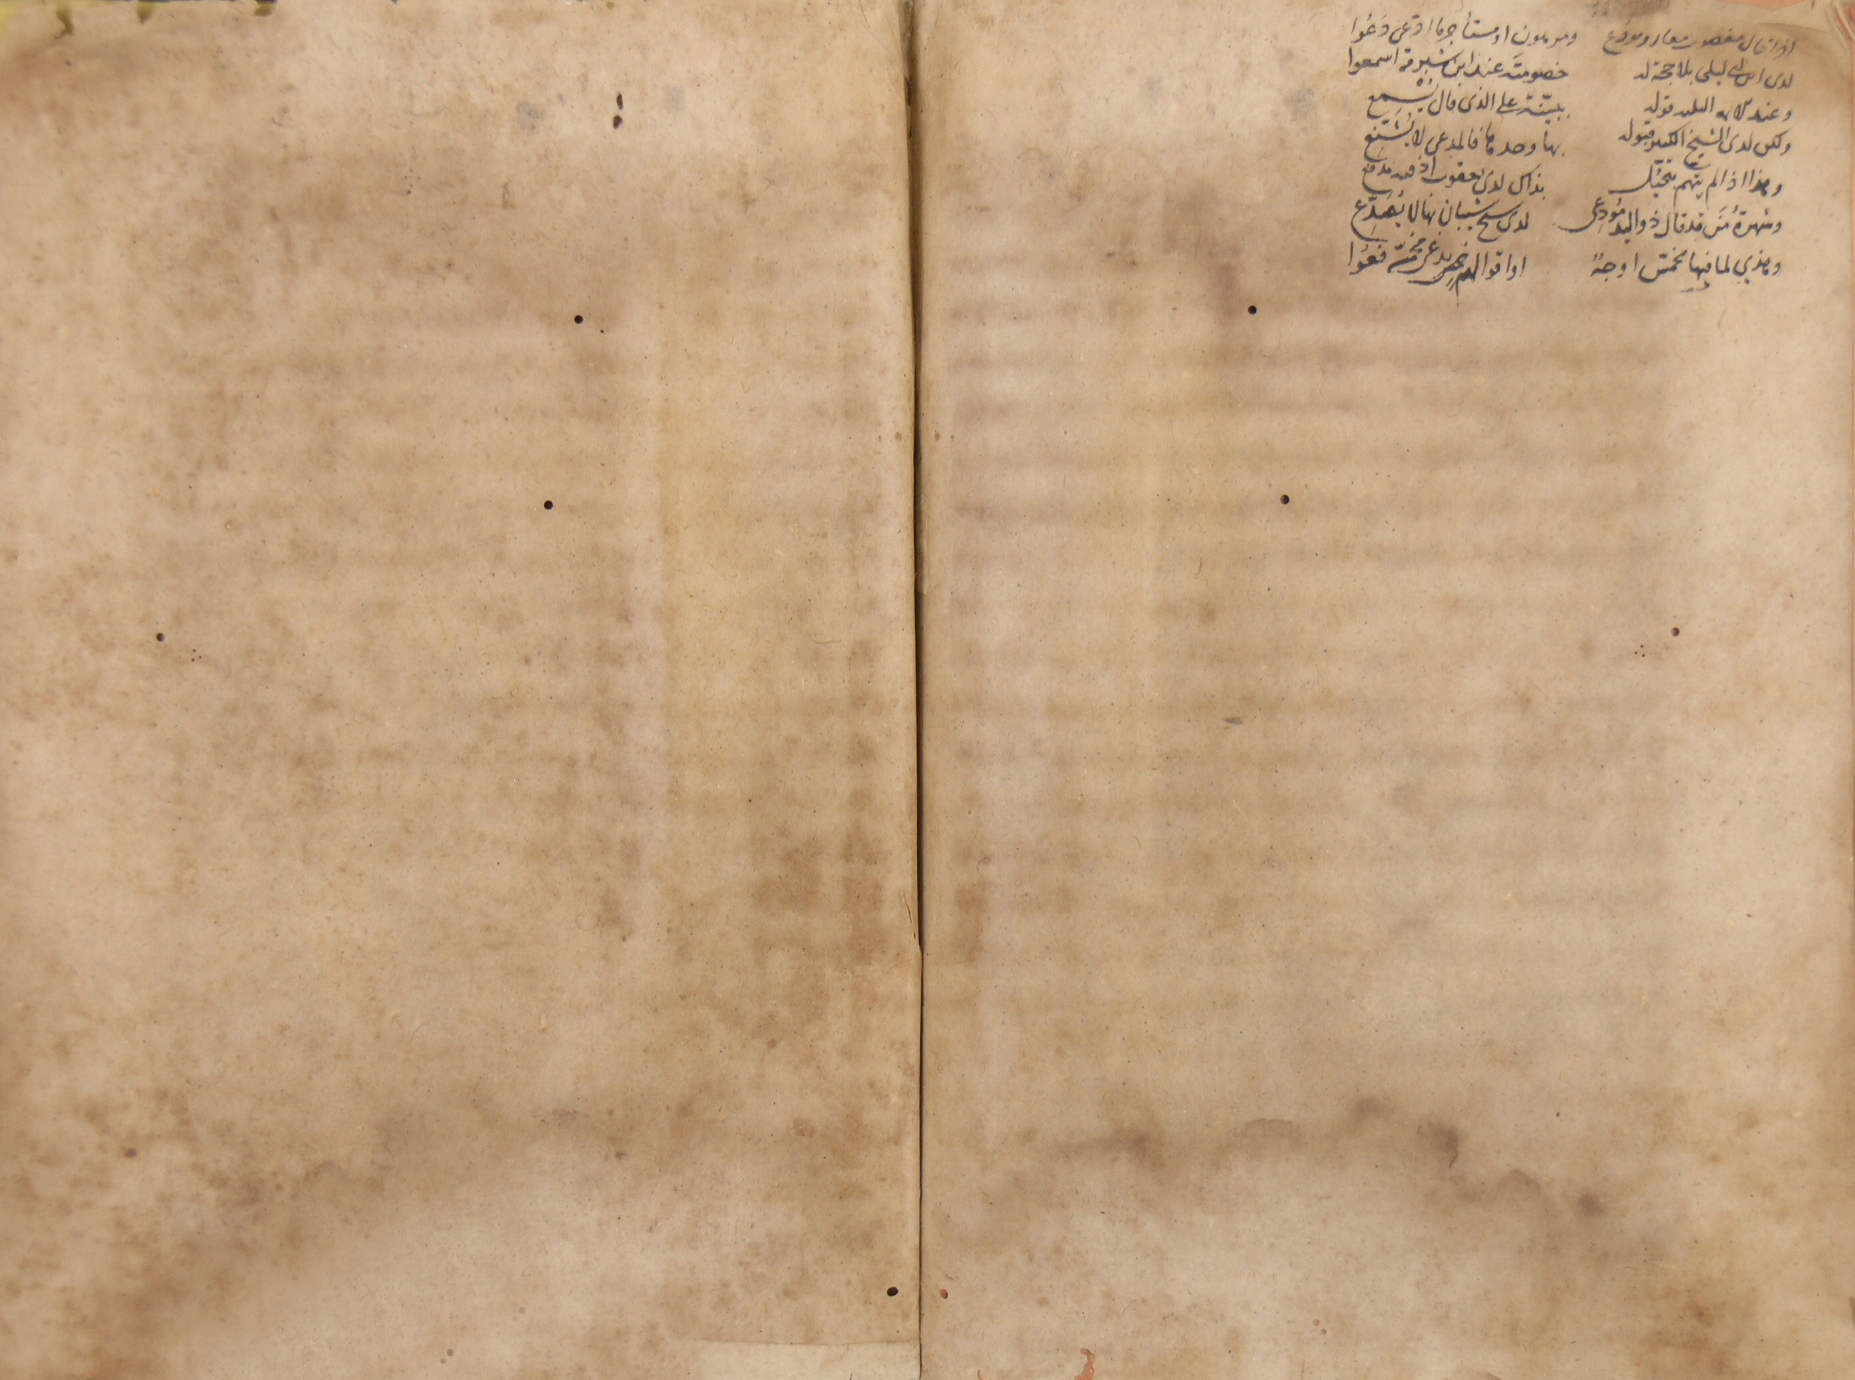 اذا قال مغصوب معار ومودع ومرهون او مستأجر ما ادعى دعوا
لدى ابن ابي ليلى بلا حجة له خصومته عند ابن شبرمة اسمعوا
وعند قوله ببينة على الذى قال يسمع
ولكن لدى الشيخ الكبير قبوله بها وحدها فالمدعى لا
وهذا اذا لم يتهم بتحيل بذاك لدى يعقوب اذ فيه مدفع
وشهرة من قد قال ذو اليد مودعى لدى شيخ شيبان بها لا
وهذي لما فيها بخمس اوجه او اقوالهم فعوا